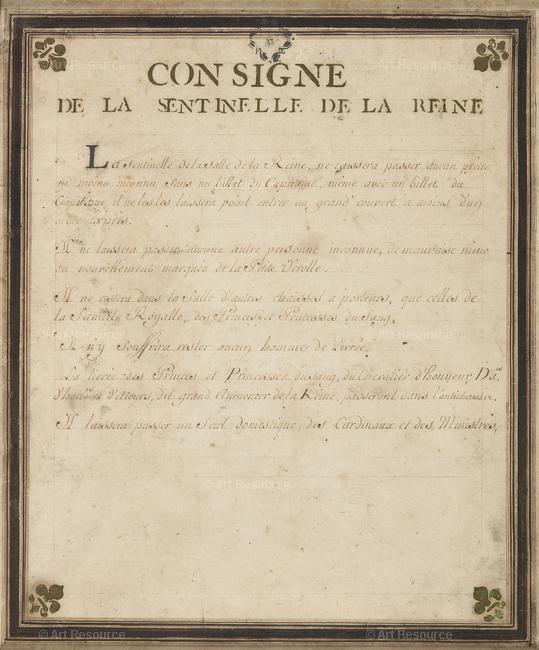 CONSIGNE
DE LA SENTINELLE DE LA REINE
La Sentinelle de la Salle de la Reine, ne laissera passer aucun prêtre
ni moine inconnu sans un billet du Capitaine, même avec un billet du
Capitaine, il ne les laissera point entrer au grand couvert a moins d'un
ordre exprès.
Il ne laissera passer aucune autre personne inconnue, de mauvaise mine
ou nouvellement marquée de la Petite Verolle.
Il ne restera dans la Salle d'autres chaises a porteurs, que celles de
la Famille Royalle, des Princes et Princesses du Sang.
Il n'y souffrira rester aucun homme de Livrée.
La livrée des Princes et Princesses du sang, du Chevalier d'honneur, Da.es
d'hon.r et d'Atours, du grand Aumonier de la Reine, passeront dans l'antichambre.
Il laissera passer un seul domestique, des Cardinaux et des Ministres,
© Art Resource
© Art Resource
© Art Resource
© Art Resource
© Art Resource
© Art Resource
© Art Resource